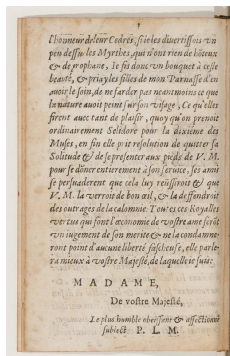 l'honneur de leur Cedres, si ie les divertissois vn
peu dessus les Myrthes, qui n'ont rien de hôteux
& de prophane, Ie fis donc vn bouquet à ceste
beauté, & priay les filles de mon Parnasse d'en
auoir le soin, de ne farder pas neantmoins ce que
la nature auoit peint sur son visage, Ce qu'elles
firent auec tant de plaisir, quoy qu'on prenoit
ordinairement Selidore pour la dixiéme des
Muses, en fin elle prit resolution de quitter sa
Solitude & de se presenter aux pieds de V. M.
pour se dõner entierement à son seruice, ses amis
se persuaderent que cela luy reüssiroit & que
V. M. la verroit de bon œil, & la deffendroit
des outrages de la calomnie. Toutes ces Royalles
vertus qui font l'œconomie de vostre ame ferõt
vn iugement de son merite & ne la condamne-
ront point d'aucune liberté fascheuse, elle parle-
ra mieux à vostre Majesté, de laquelle ie suis
MADAME,
De vostre Majesté,
Le plus humble obeïssant & affectionné
subiect P. L. M.